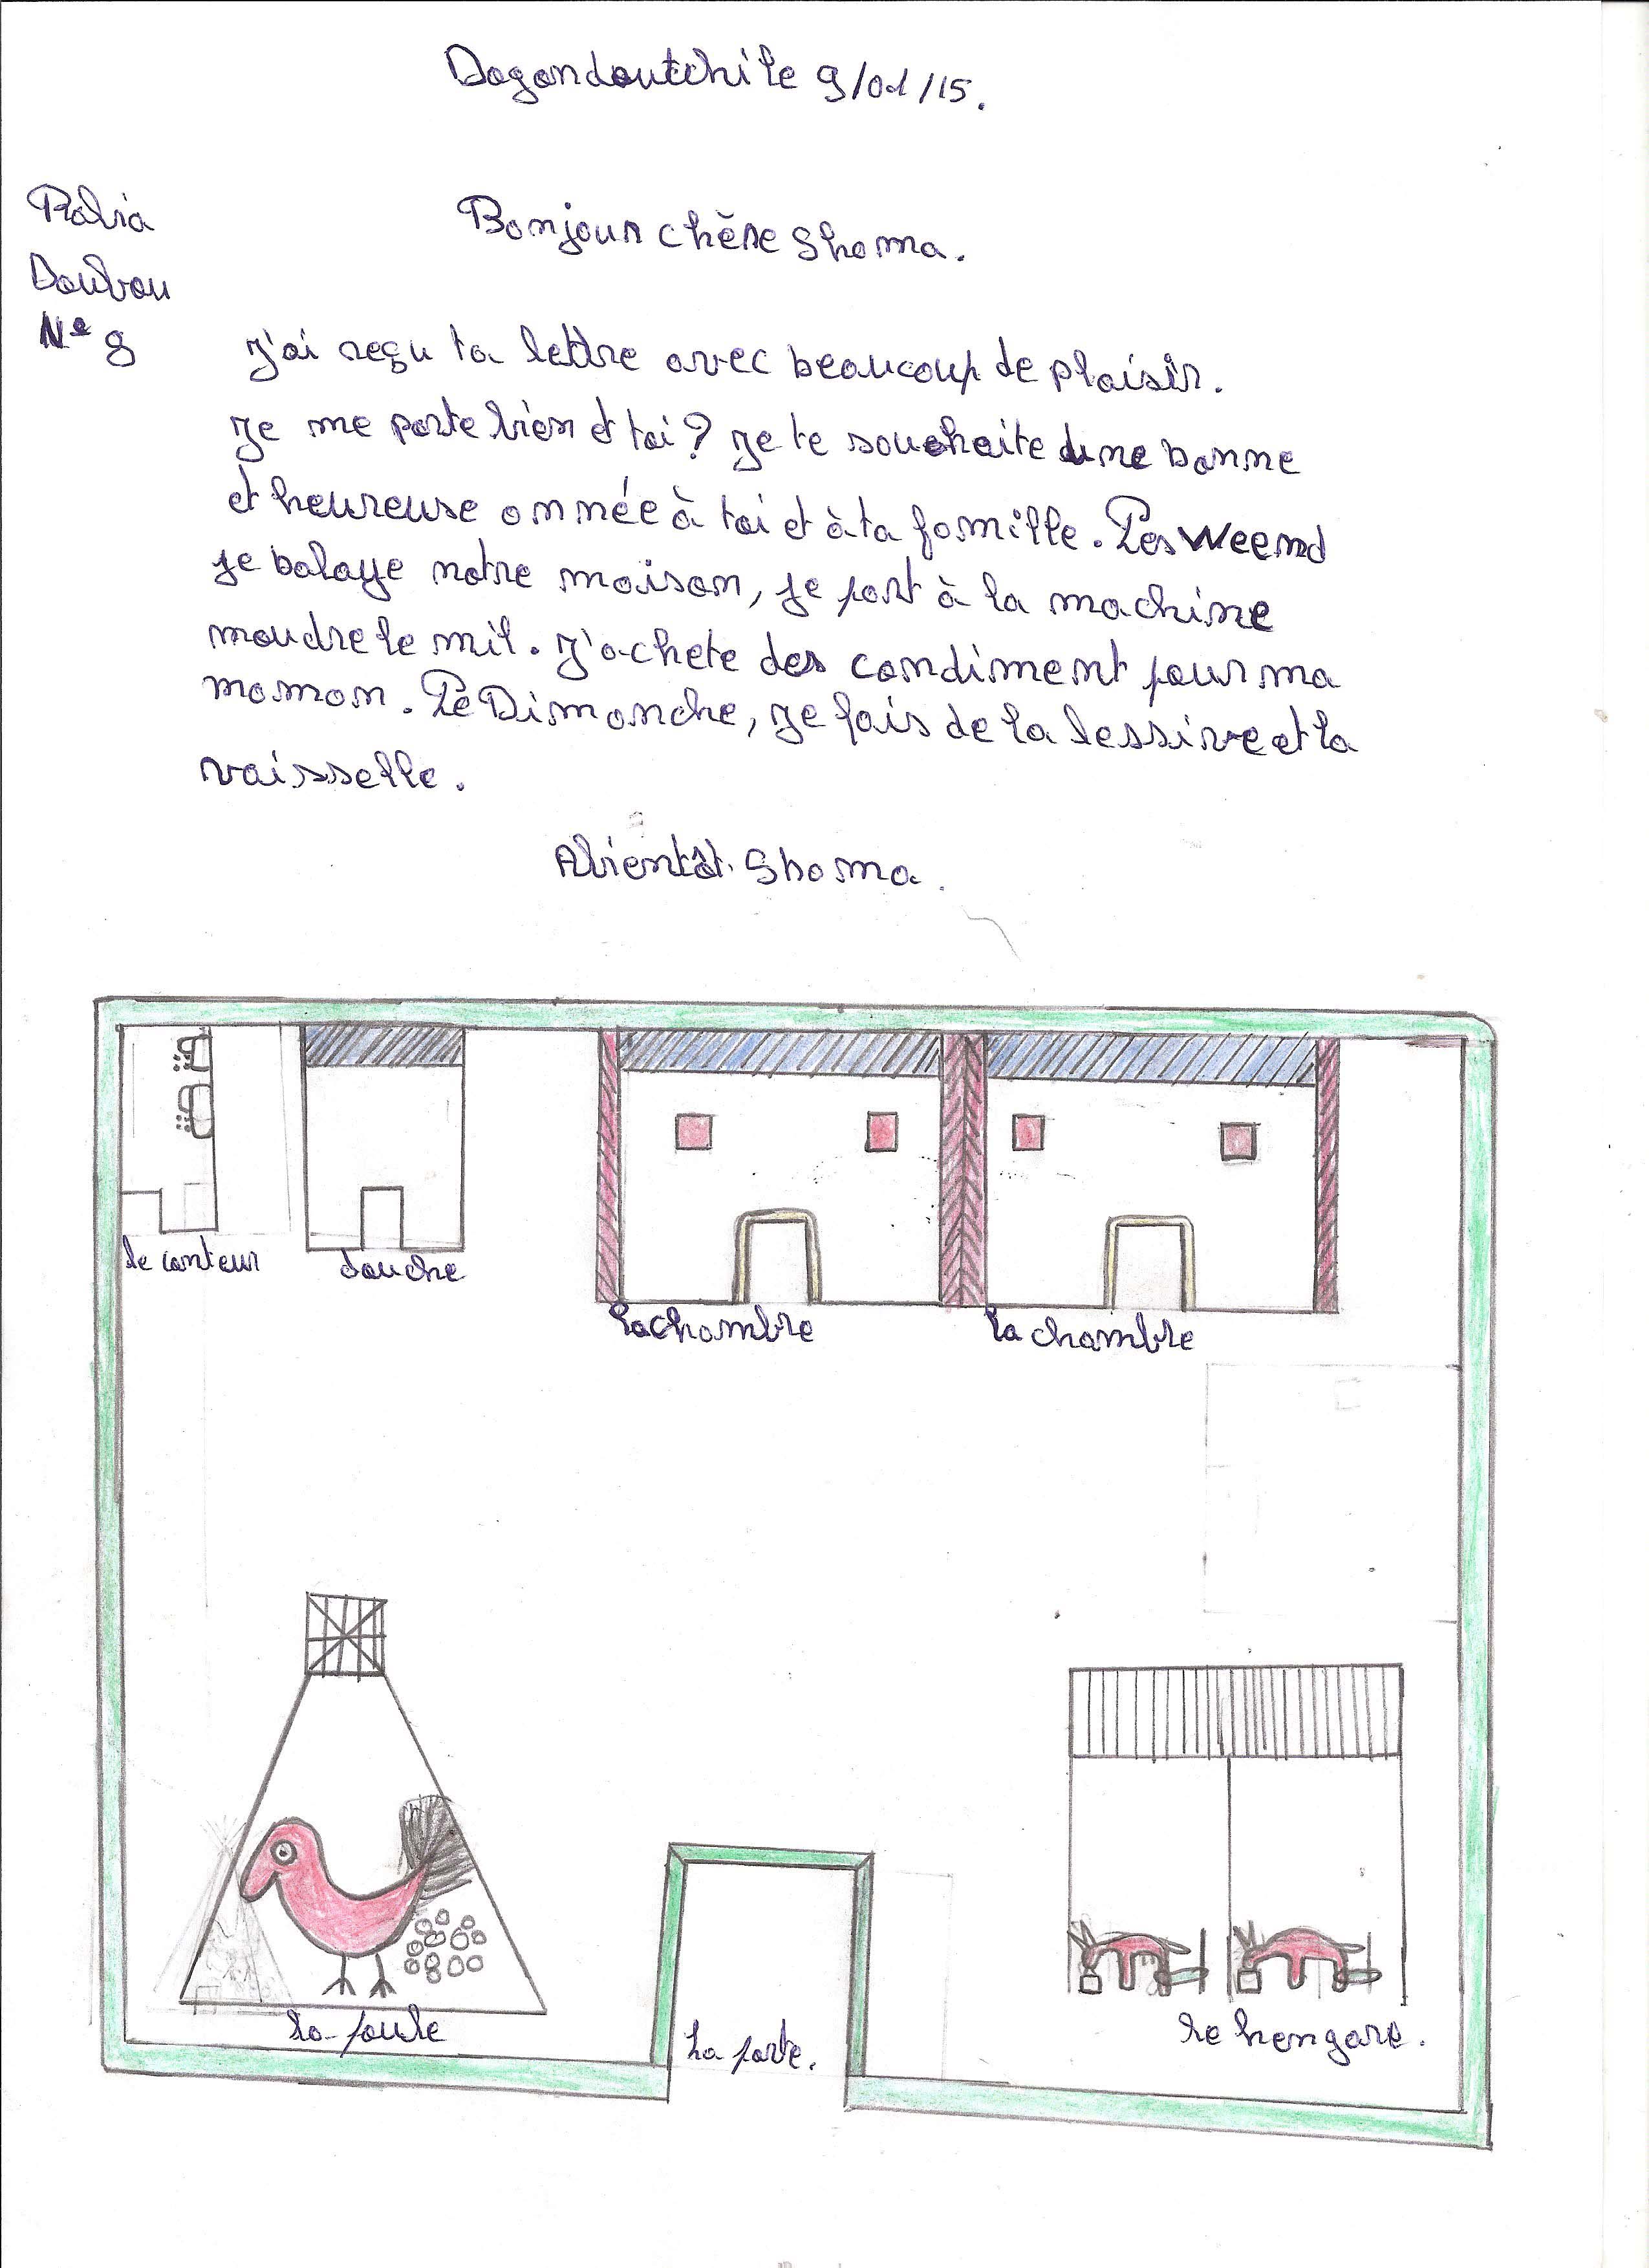 Dogondoutchi le 9/01/15.
Rabia
Doubou
N° 8
Bonjour chère Shoma.
J'ai reçu ta lettre avec beaucoup de plaisir.
Je me porte bien et toi? Je te souhaite une bonne
et heureuse année à toi et à ta famille. Les Weend
je balaye notre maison, je part à la machine
moudre le mil. J'achete des condiment pour ma
maman. Le Dimanche, je fais de la lessive et la
vaisselle.
Abientôt Shoma.
le conteur
douche
la chambre
la chambre
la poule
La porte.
le hengare.